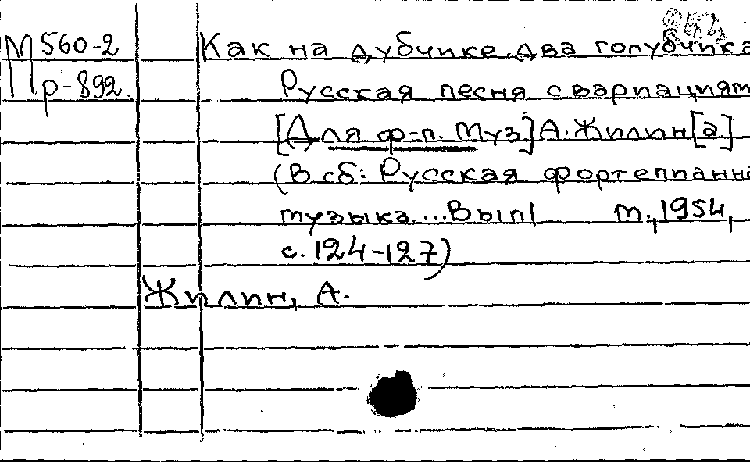 М 560-2
р-892.
Как на дубчике два голубчика
Русская песня с вариациям
[Для ф-п. Муз] А. Жилин[а]
(В сб: Русская фортепианн
музыка... Вып 1 М., 1954,
с. 124-127)
Жилин, А.